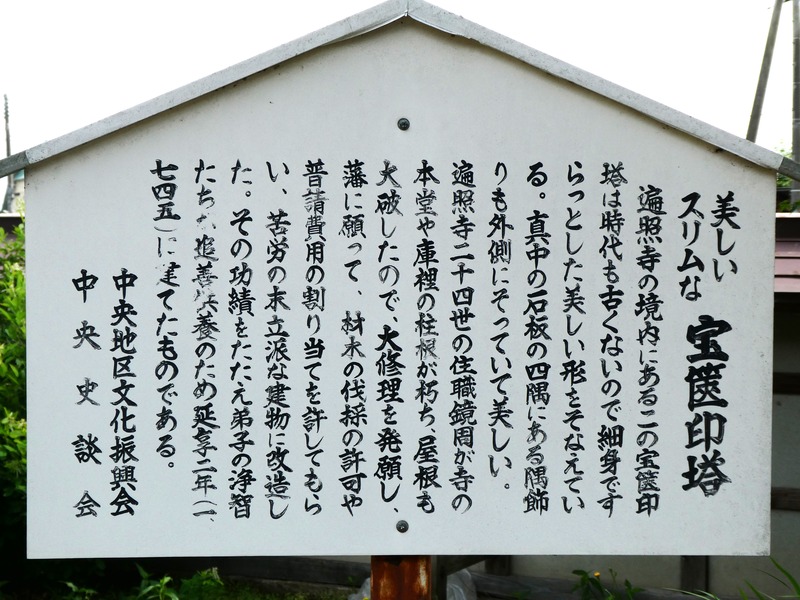 美しい
スリムな
宝篋印塔
遍照寺の境内にあるこの宝篋印
塔は時代も古くないので細身です
らっとした美しい形をそなえてい
る。真中の石板の四隅にある隅飾
りも外側にそっていて美しい。
遍照寺二十四世の住職鏡周が寺の
本堂や庫裡の柱根が朽ち、屋根も
大破したので、大修理を発願し、
藩に願って、材木の伐採の許可や
普請費用の割り当てを許してもら
い、苦労の末立派な建物に改造し
た。その功績をたたえ弟子の浄智
たちが追善供養のため延享二年(一
七四五)に建てたものである。
中央地区文化振興会
中央史談会